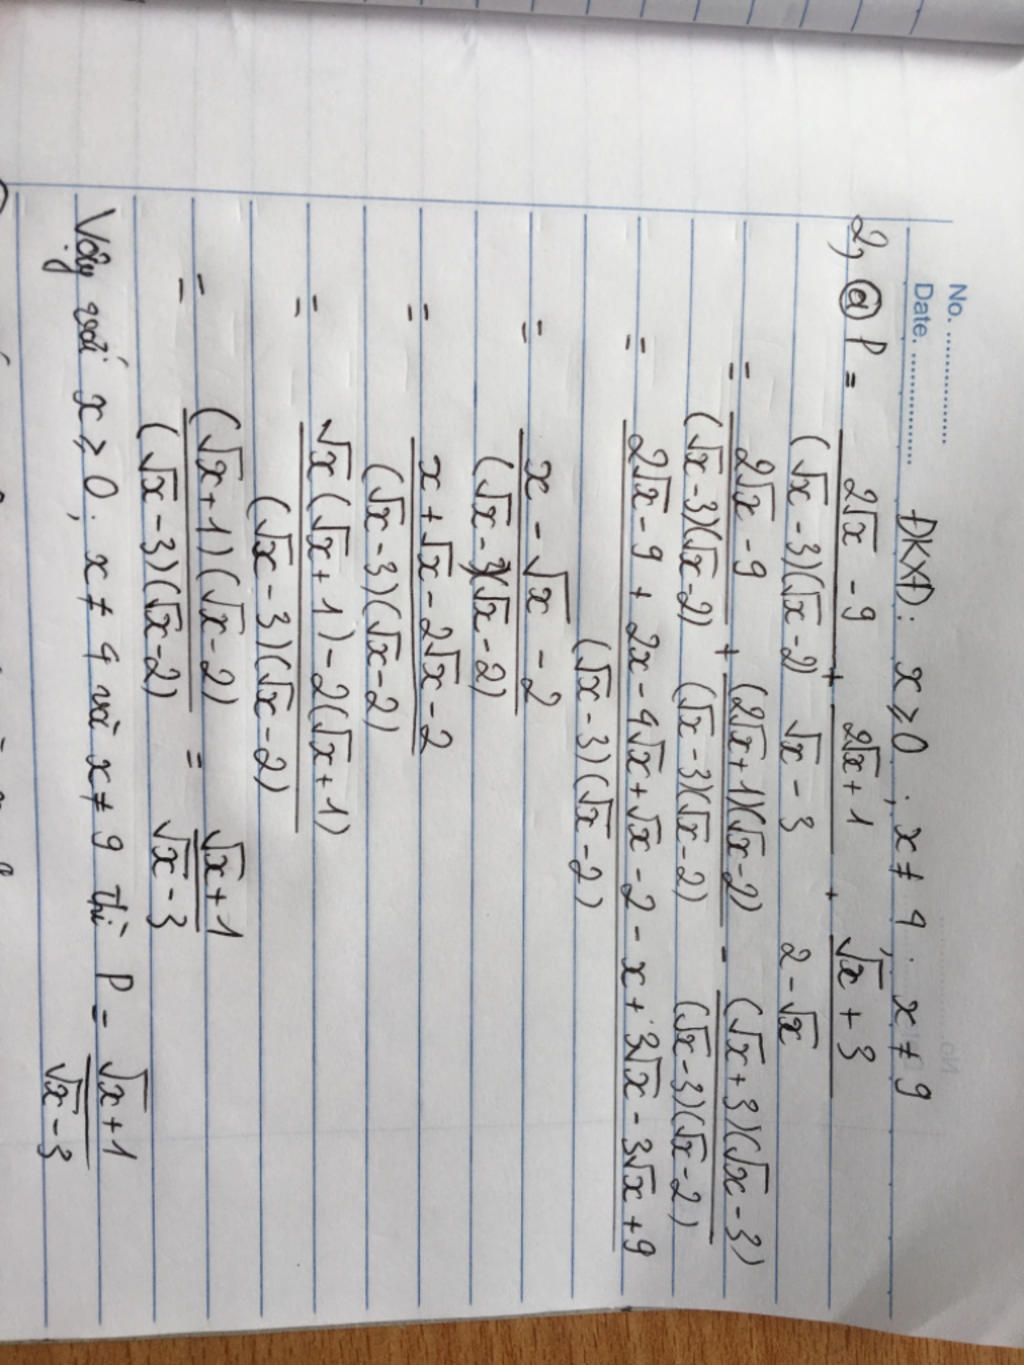 No. ....................
Date. ..................
ĐKXĐ: x ≥ 0; x ≠ 4; x ≠ 9
2, ⓐ P = (2√x - 9)/((√x - 3)(√x - 2)) + (2√x + 1)/(√x - 3) + (√x + 3)/(2 - √x)
= (2√x - 9)/((√x - 3)(√x - 2)) + ((2√x + 1)(√x - 2))/((√x - 3)(√x - 2)) - ((√x + 3)(√x - 3))/((√x - 3)(√x - 2))
= (2√x - 9 + 2x - 4√x + √x - 2 - x + 3√x - 3√x + 9)/((√x - 3)(√x - 2))
= (x - √x - 2)/((√x - 3)(√x - 2))
= (x + √x - 2√x - 2)/((√x - 3)(√x - 2))
= (√x(√x + 1) - 2(√x + 1))/((√x - 3)(√x - 2))
= ((√x + 1)(√x - 2))/((√x - 3)(√x - 2)) = (√x + 1)/(√x - 3)
Vậy với x ≥ 0; x ≠ 4 và x ≠ 9 thì P = (√x + 1)/(√x - 3)